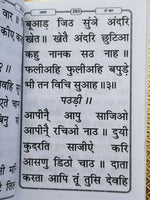 २९३
बुआड़ जिउ सुंञे अंदरि
खेत ॥ खेतै अंदरि छुटिआ
कहु नानक सउ नाह ॥
फलीअहि फुलीअहि बपुड़े
भी तन विचि सुआह ॥३॥
पउड़ी ॥
आपीनै॑ आपु साजिओ
आपीनै॑ रचिओ नाउ ॥ दुयी
कुदरति साजीऐ करि
आसणु डिठो चाउ ॥ दाता
करता आपि तूं तुसि देवहि